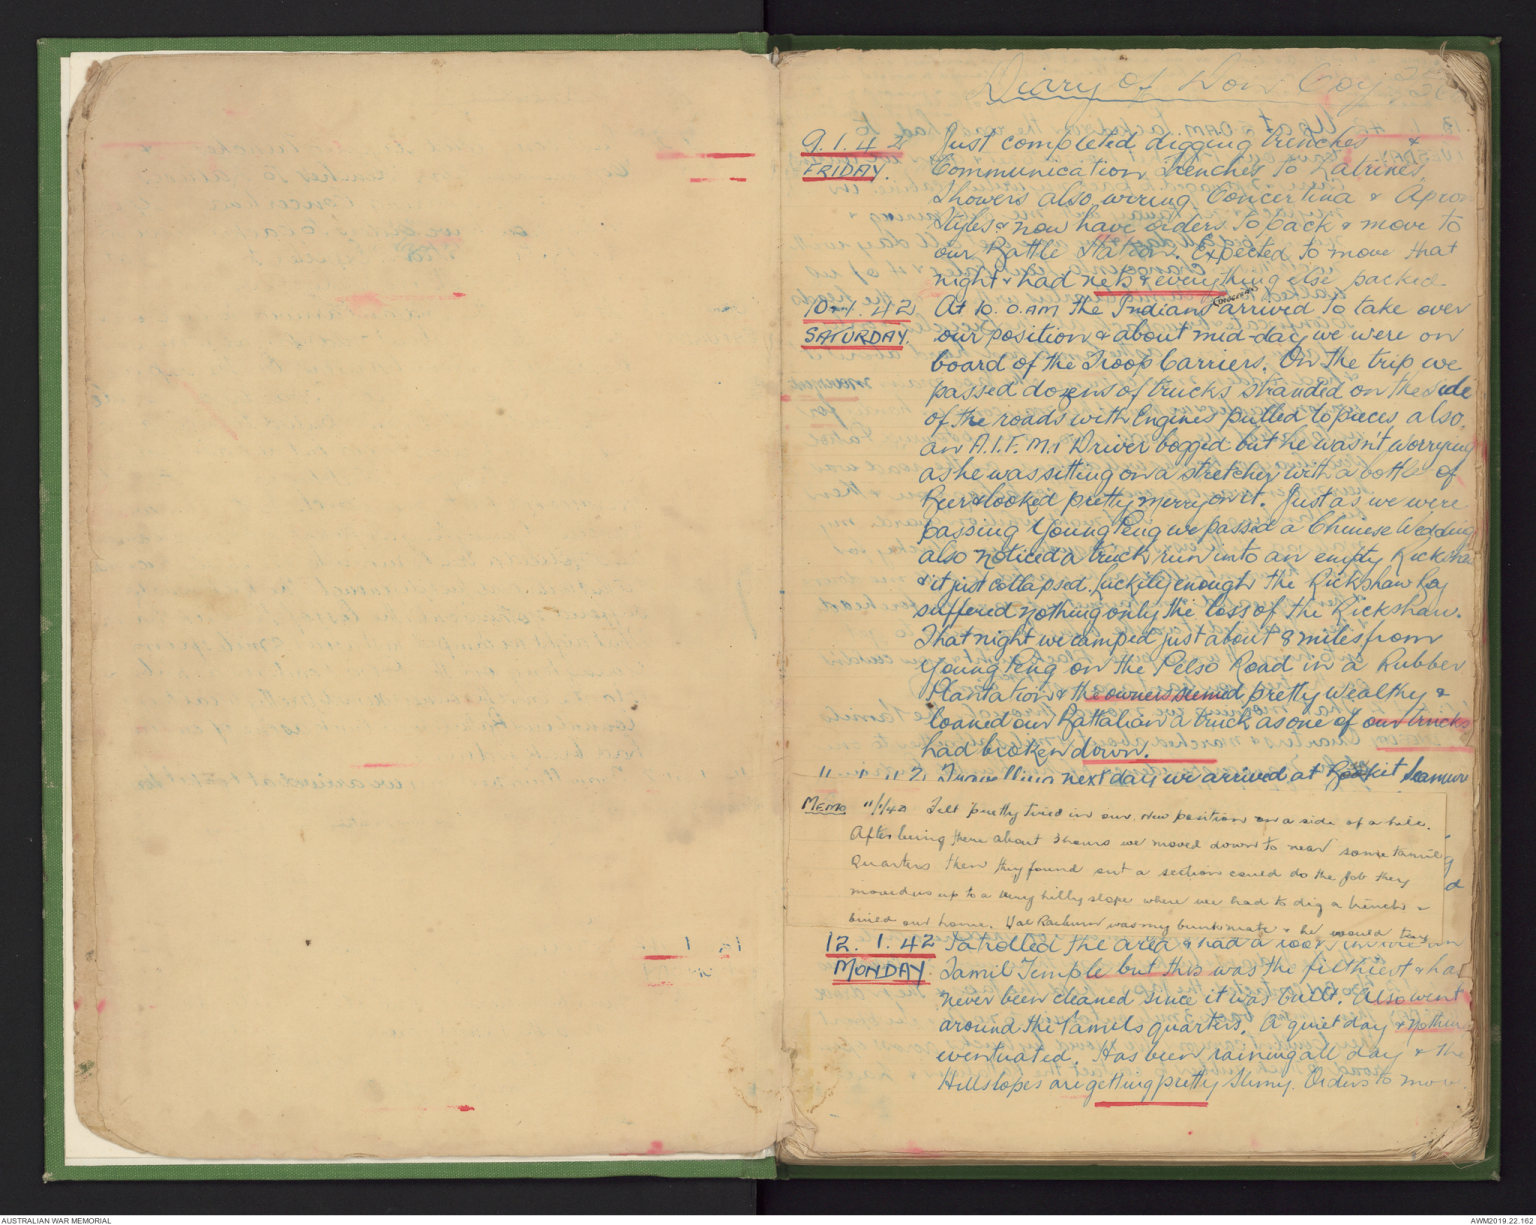 Diary of Don Coy
9.1.42 Just completed digging trenches &
FRIDAY. Communication Trenches to Latrines,
Showers also wiring Concertina & Apron
Styles & now have orders to pack & move to
our Battle Stations. Expected to move that
night & had nets & everything else packed.
10-1.42 At 10.0.AM the Indians arrived to take over
SATURDAY. our position & about mid-day we were on
board of the Troop Carriers. On the trip we
passed dozens of trucks stranded on the side
of the roads with Engines pulled to pieces also
an A.I.F. M.T Driver bogged but he wasn't worrying
as he was sitting on a stretcher with a bottle of
Beer & looked pretty merry on it. Just as we were
passing Young Peng we passed a Chinese Wedding
also noticed a truck run into an empty Rickshaw
& it just collapsed. Luckily enough the Rickshaw Boy
suffered nothing only the loss of the Rickshaw.
That night we camped just about 8 miles from
Young Peng on the Pelso Road in a Rubber
Plantation & the owners seemed pretty wealthy &
loaned our Battalion a truck as one of our trucks
had broken down.
Travelling next day we arrived at
MEMO 11/1/42 Felt pretty tired in our new position on a side of a hill.
After being there about 3 hours we moved down to near some tamil
Quarters then they found out a section could do the job they
moved us up to a very hilly slope where we had to dig a trench &
build our home. Val Raeburn was my bunkmate & he would try
12.1.42 Patrolled the area & had a look
MONDAY. Tamil Temple but this was the filthiest & has
never been cleaned since it was built. Also went
around the Tamils quarters. A quiet day &
eventuated. Has been raining all day & the
Hillslopes are getting pretty slimy. Orders to move
AUSTRALIAN WAR MEMORIAL
AWM2019.22.162